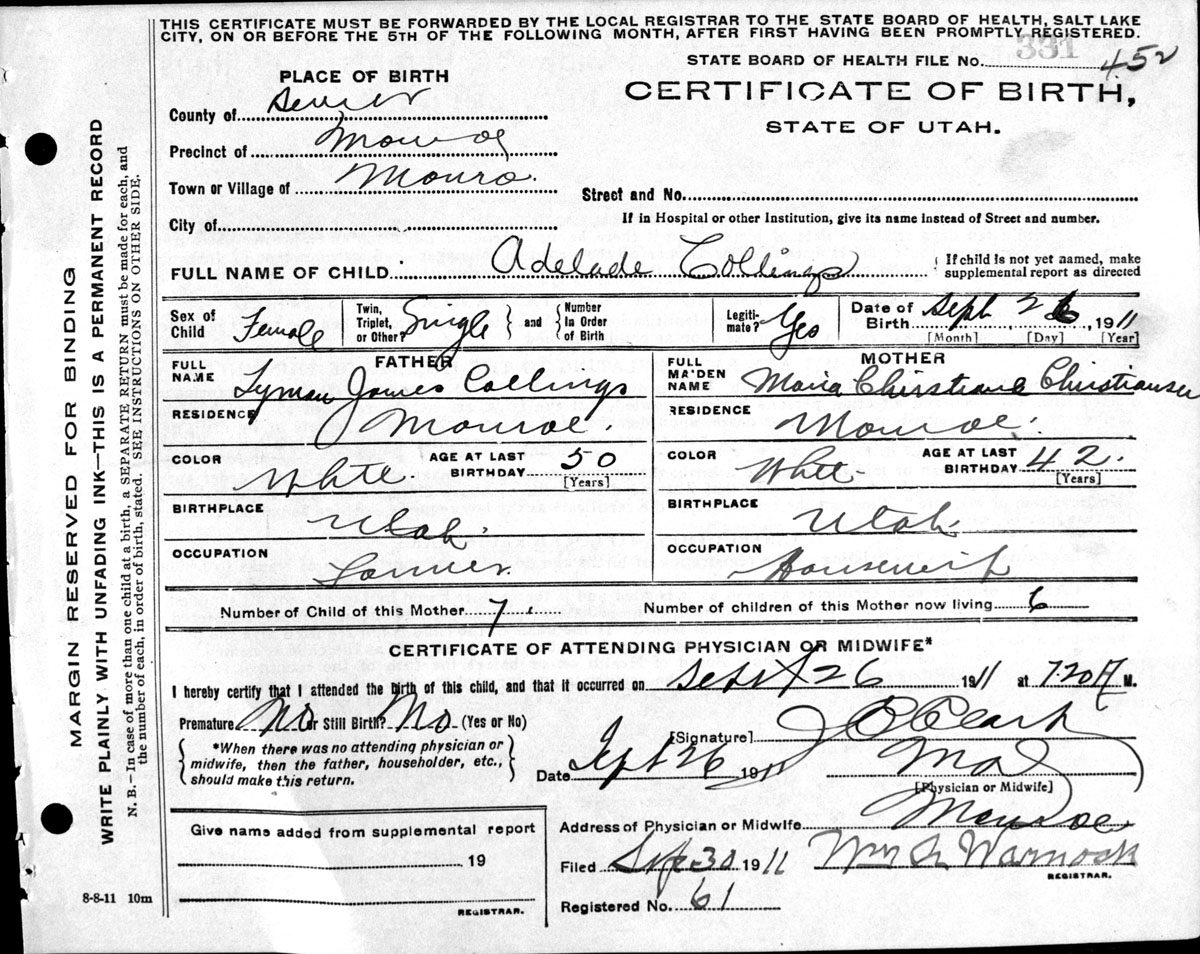 THIS CERTIFICATE MUST BE FORWARDED BY THE LOCAL REGISTRAR TO THE STATE BOARD OF HEALTH, SALT LAKE
CITY, ON OR BEFORE THE 5TH OF THE FOLLOWING MONTH, AFTER FIRST HAVING BEEN PROMPTLY REGISTERED.
331
STATE BOARD OF HEALTH FILE No. 452
CERTIFICATE OF BIRTH,
STATE OF UTAH.
PLACE OF BIRTH
County of Sevier
Precinct of Monroe
Town or Village of Monro.
Street and No.
City of
If in Hospital or other Institution, give its name instead of Street and number.
FULL NAME OF CHILD Adelade Collings
{ If child is not yet named, make
supplemental report as directed
Sex of Child Female
Twin, Triplet, or Other? Single } and { Number In Order of Birth
Legiti-mate? Yes
Date of Birth Sept. 26, 1911
[Month] [Day] [Year]
FATHER
FULL NAME Lyman James Collings
RESIDENCE Monroe.
COLOR White. AGE AT LAST BIRTHDAY 50
[Years]
BIRTHPLACE Utah.
OCCUPATION Farmer.
MOTHER
FULL MAIDEN NAME Maria Christiane Christiansen
RESIDENCE Monroe.
COLOR White. AGE AT LAST BIRTHDAY 42.
[Years]
BIRTHPLACE Utah.
OCCUPATION Housewife
Number of Child of this Mother 7. Number of children of this Mother now living 6
CERTIFICATE OF ATTENDING PHYSICIAN OR MIDWIFE*
I hereby certify that I attended the birth of this child, and that it occurred on Sept 26 1911 at 7.20 M.
Premature No or Still Birth? No (Yes or No)
{ *When there was no attending physician or
midwife, then the father, householder, etc.,
should make this return. }
[Signature] J C Clark
Date Sept 26 1911
[Physician or Midwife]
Give name added from supplemental report
19
REGISTRAR.
Address of Physician or Midwife Monroe
Filed Sep 30 1911 Wm Warnock
REGISTRAR.
Registered No. 61
8-8-11 10m
MARGIN RESERVED FOR BINDING
WRITE PLAINLY WITH UNFADING INK—THIS IS A PERMANENT RECORD
N. B.—In case of more than one child at a birth, a SEPARATE RETURN must be made for each, and
the number of each, in order of birth, stated. SEE INSTRUCTIONS ON OTHER SIDE.